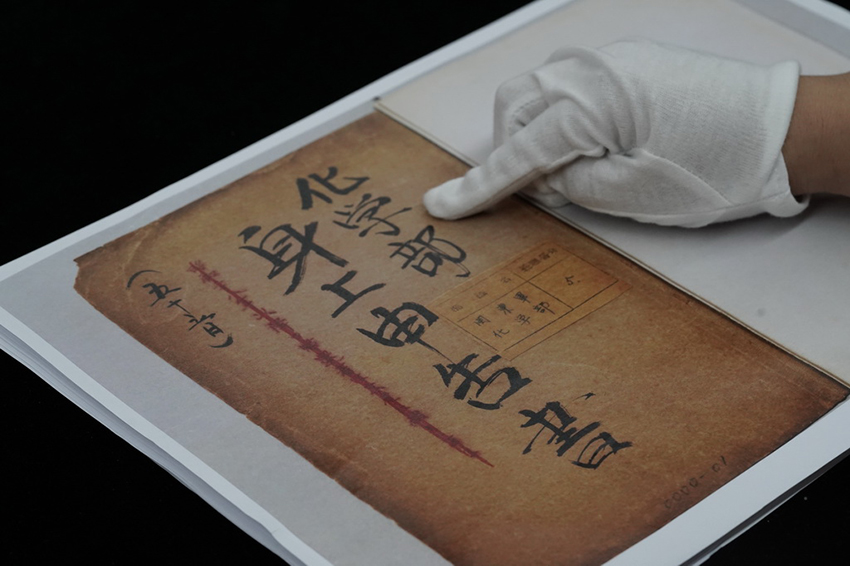 化学部
身上申告書
(五十音)
関東軍
化学部
0000-01